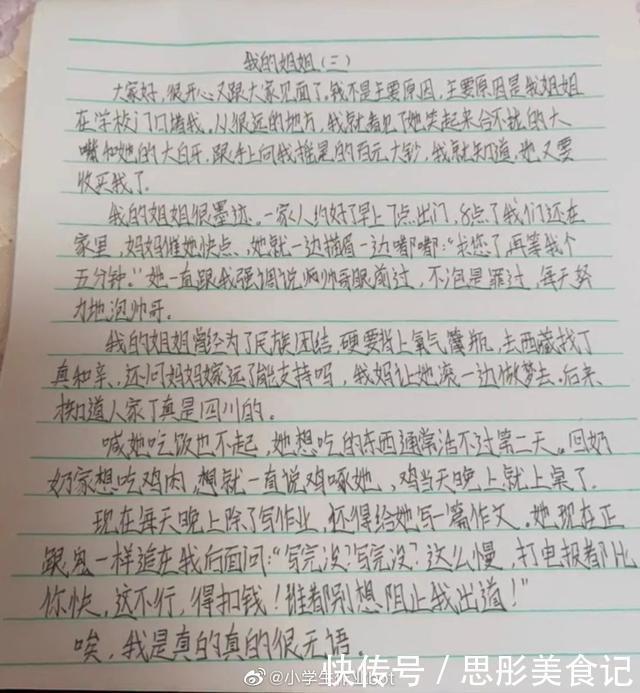 我的姐姐(二)
大家好,很开心又跟大家见面了,我不是主要原因,主要原因是我姐姐
在学校门口堵我,从很远的地方,我就看见了她笑起来合不拢的大
嘴和她的大白牙,跟手上向我摇晃的百元大钞,我就知道,她又要
收买我了。
我的姐姐很墨迹。一家人约好了早上7点出门,8点了我们还在
家里,妈妈催她快点,她就一边描眉一边嘟嘟:“我您了,再等我个
五分钟。”她一直跟我强调说帅哥眼前过,不泡是罪过,每天努
力地泡帅哥。
我的姐姐曾经为了民族团结,硬要背上氧气瓶,去西藏找丁
真和亲,还问妈妈嫁远了能支持吗,我妈让她滚一边做梦去。后来
才知道人家丁真是四川的。
喊她吃饭也不起,她想吃的东西通常活不过第二天。回奶
奶家想吃鸡肉,想就一直说鸡啄她,鸡当天晚上就上桌了。
现在每天晚上除了写作业,还得给她写一篇作文。她现在正
跟鬼一样追在我后面问:“写完没?写完没?这么慢,打电报都比
你快,这不行,得扣钱!谁都别想阻止我出道!”
唉,我是真的真的很无语。
@小学生
快传号/思彤美食记